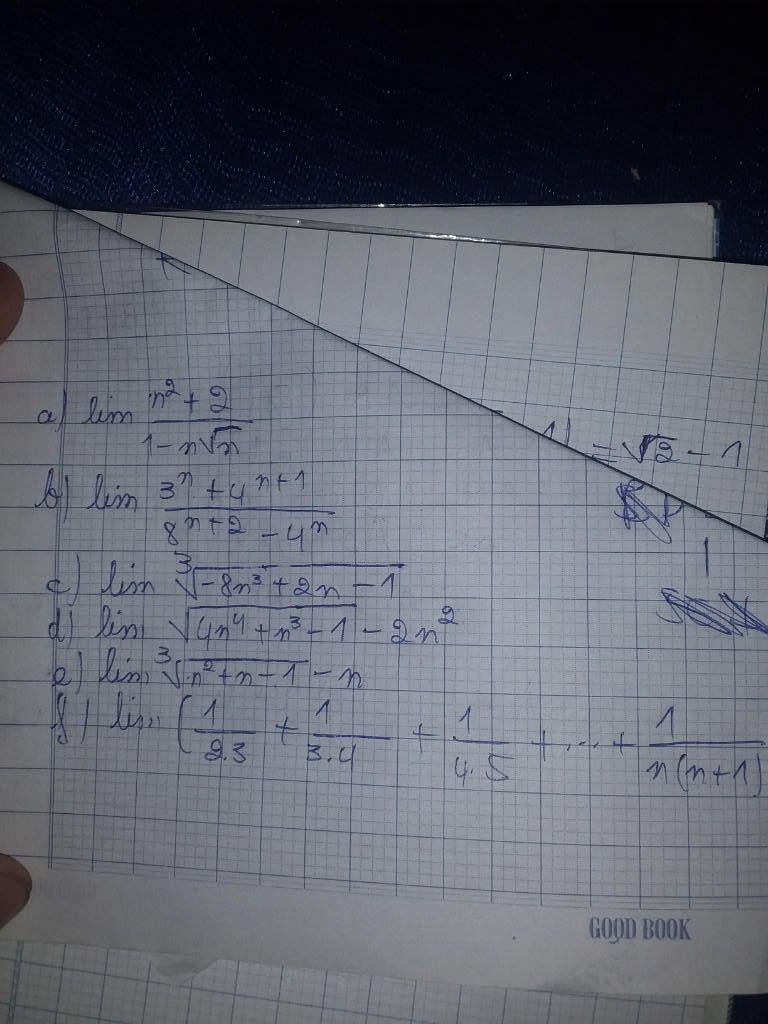 a) lim (n² + 2)/(1 - n√n)
= √2 - 1
b) lim (3ⁿ + 4ⁿ⁺¹)/(8ⁿ⁺² - 4ⁿ)
c) lim ∛(-8n³ + 2n - 1)
d) lim √(4n⁴ + n³ - 1) - 2n²
e) lim ∛(n² + n - 1) - n
f) lim (1/2.3 + 1/3.4 + 1/4.5 + ... + 1/n(n+1)
GOOD BOOK